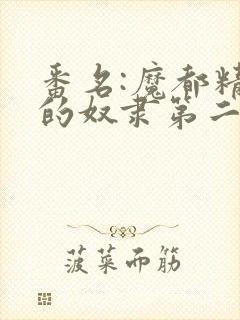 番名:魔都精
的奴隶第二
菠菜而筋